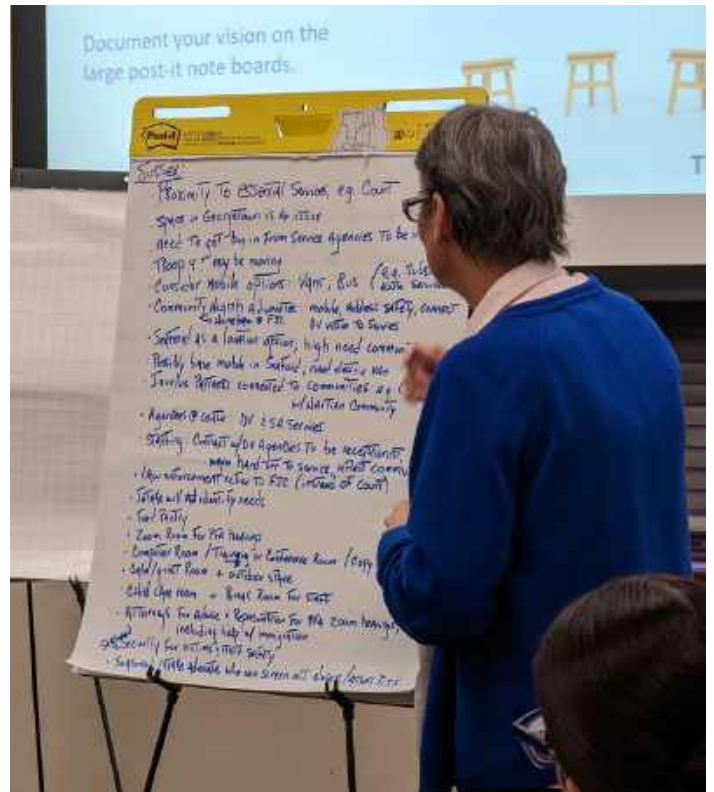 Document your vision on the
large post-it note boards.
T
Post-it
SUSSEX:
· Proximity To essential Services, e.g. Court
Space in Georgetown is an issue
need To get buy in from Service Agencies To be
Troop 4 may be moving
Consider Mobile options: Vans, Bus (e.g.
· Community Health Advocates mobile, Address safety, connect
DV victim To Services
· Seaford as a location option, high need
Possibly base mobile in Seaford,
Involve Partners connected to communities e.g.
w/ Haitian Community
· Agencies @ center DV & SA Services
· Staffing Contract w/ DV Agencies To be receptionist,
warm hand off To service, reflect
· Law enforcement refer To FJC (instead of court)
· Intake will identify needs
· Food Pantry
· Zoom Room For PFA hearings
· Computer Room / Training or Conference Room / Copy
· Room + outdoor space
· Child Care room + Break Room For Staff
· Attorneys For Advice + Representation For PFA Zoom hearings,
including help w/ immigration
Security For victim/staff safety
· Intake Advocate who can screen